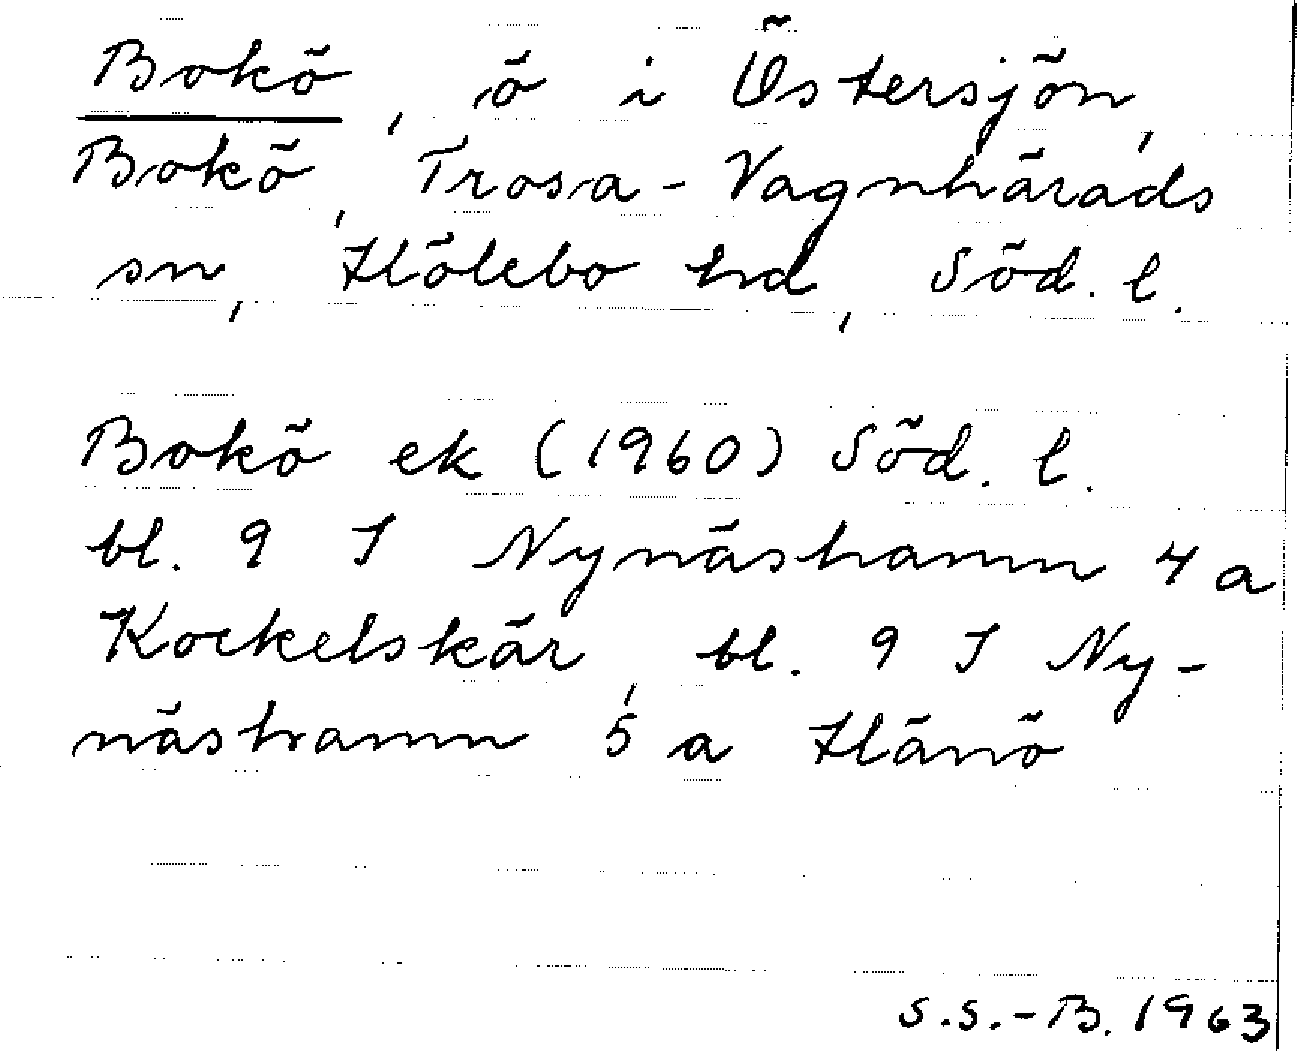 Bokö, ö i Östersjön,
Bokö, Trosa-Vagnhärads
sn, Hölebo hd, Söd. l.
Bokö ek (1960) Söd. l.
bl. 9 I Nynäshamn 4 a
Kockelskär, bl. 9 I Ny-
näshamn 5 a Hånö
S.S.-B. 1963